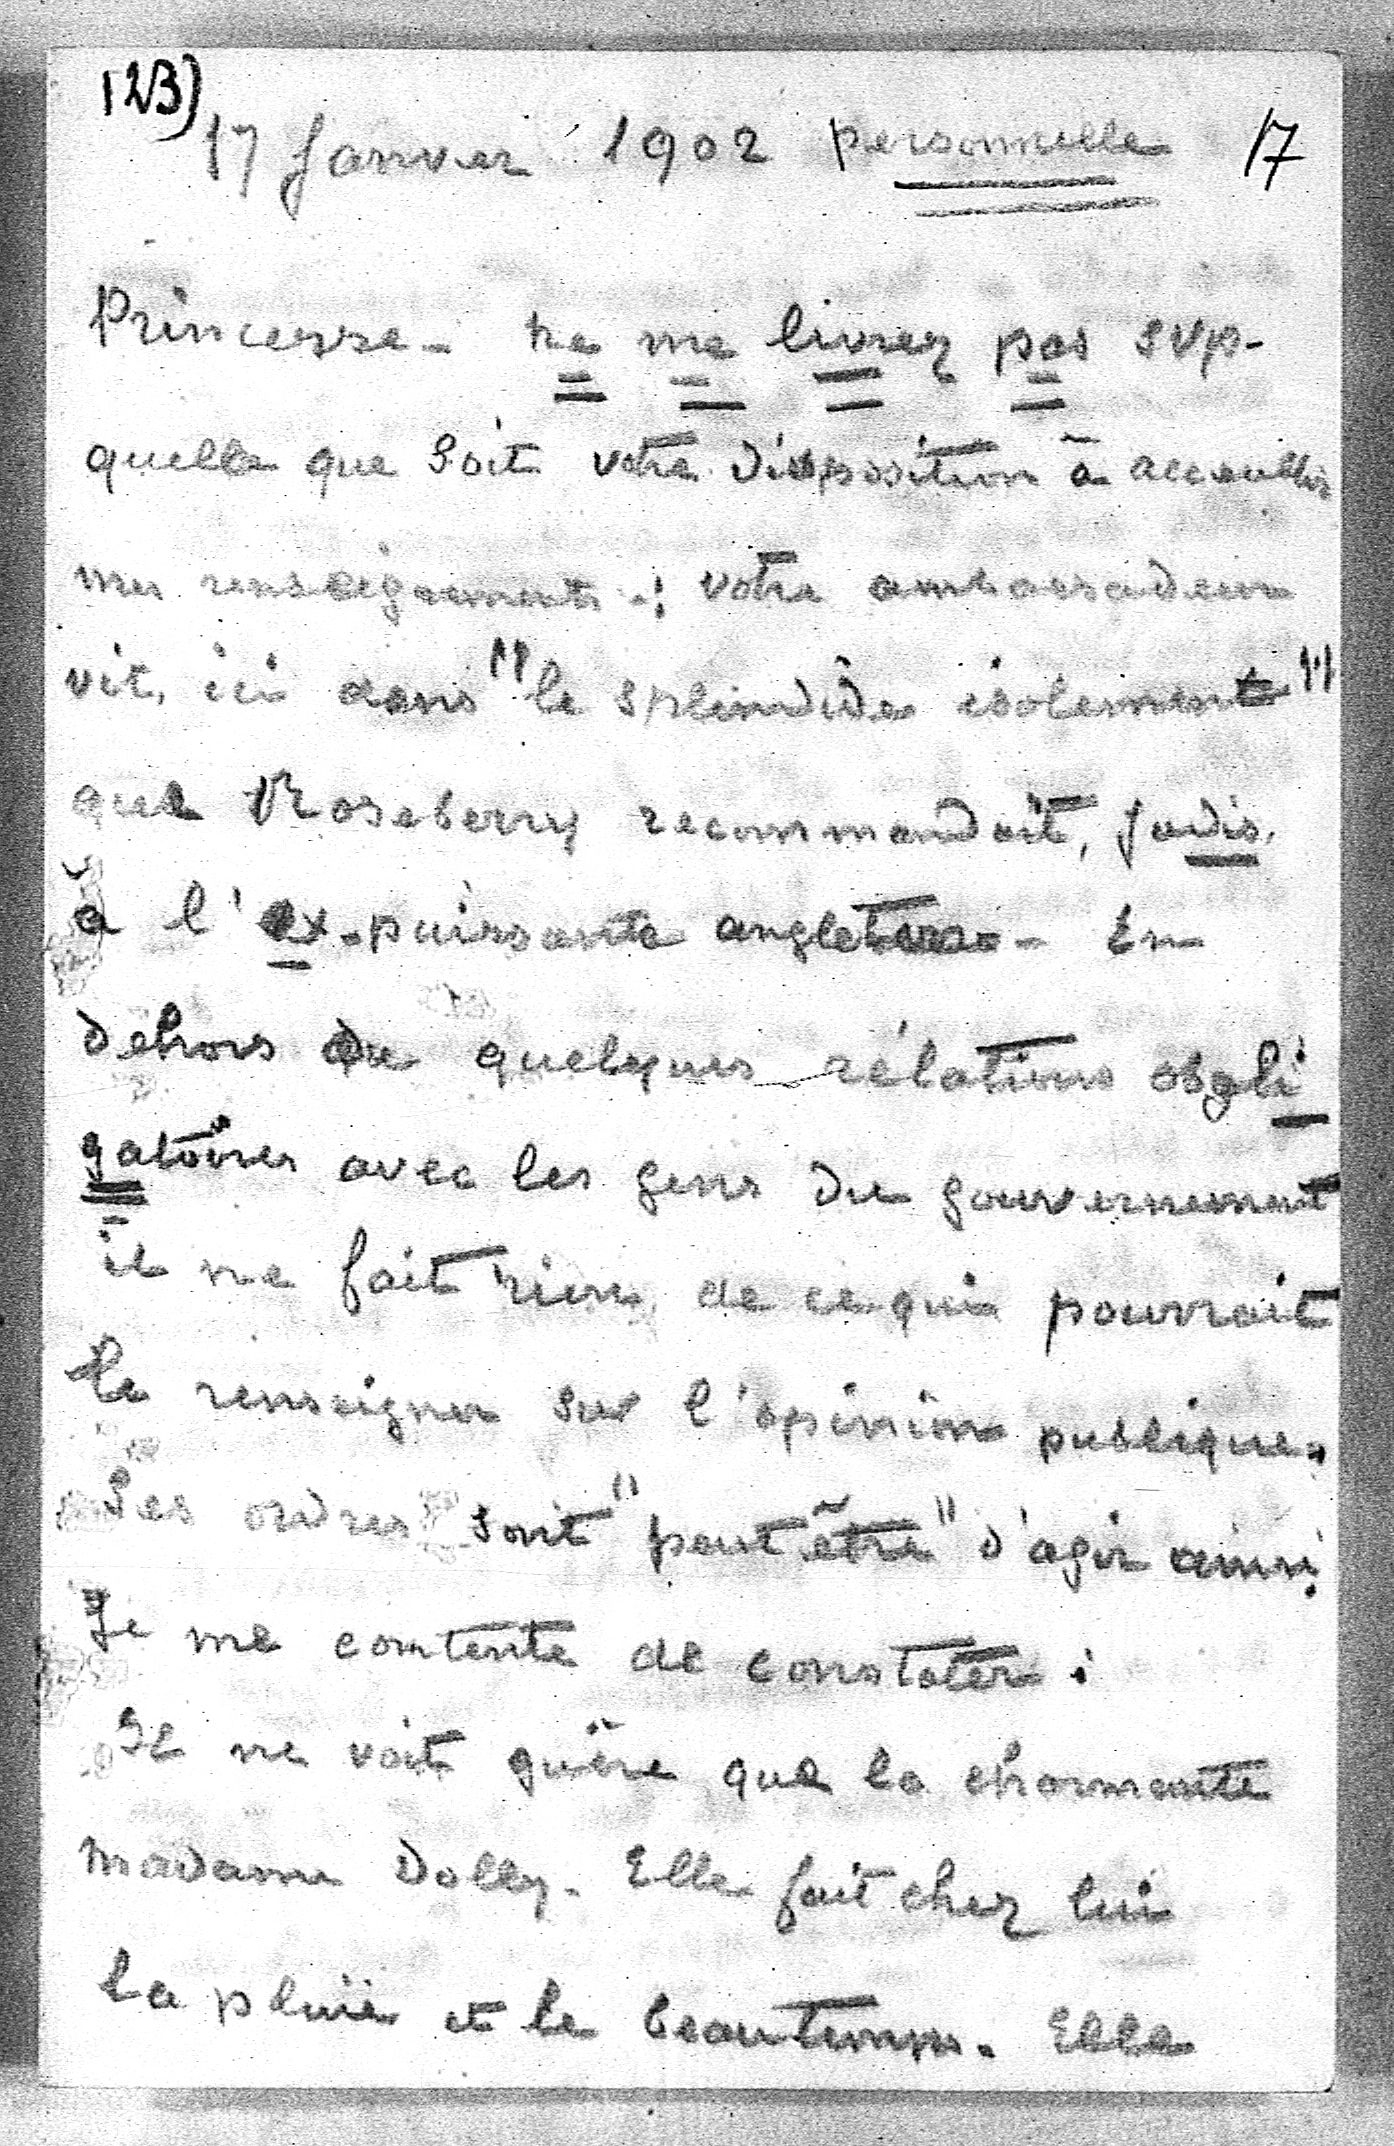 123)
17 Janvier 1902 personnelle 17
Princesse - ne me livrez pas svp -
quelle que soit votre disposition à accueillir
mes renseignements : votre ambassadeur
vit, ici dans "le splendide isolement"
que Roseberry recommandait, jadis,
à l'ex-puissante angleterre - En
dehors de quelques rélations obgli
gatoires avec les gens du gouvernement
il ne fait rien, de ce qui pourrait
le renseigner sur l'opinion publique.
Ses ordres sont "peut être" d'agir ainsi;
Je me contente de constater :
Il ne voit guère que la charmante
Madame Dolly. Elle fait chez lui
la pluie et le beau temps. Elle